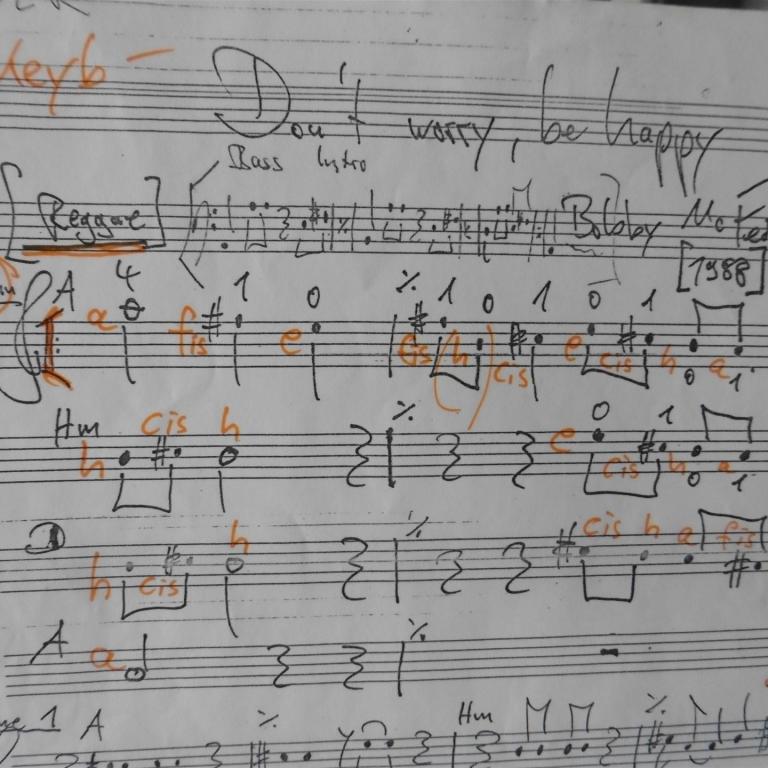 Keyb
Don't worry, be happy
Bass Intro
Reggae Bobby Mc
[1988]
A 4 1 0 % 1 0 1 0 1
a fis e fis (h) cis e cis h a
0 1
Hm cis h % 0 1
h e cis h a
0 1
D h % cis h a fis
h cis
A a %
1 A % Hm %